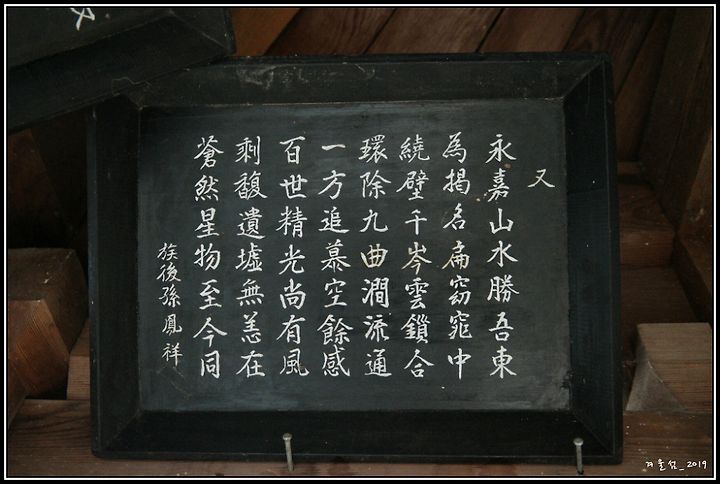 又
永嘉山水勝吾東
為揭名扁窈窕中
繞壁千岑雲鎖合
環除九曲澗流通
一方追慕空餘感
百世精光尚有風
剩馥遺墟無恙在
蒼然星物至今同
族後孫鳳祥
겨울섬_2019